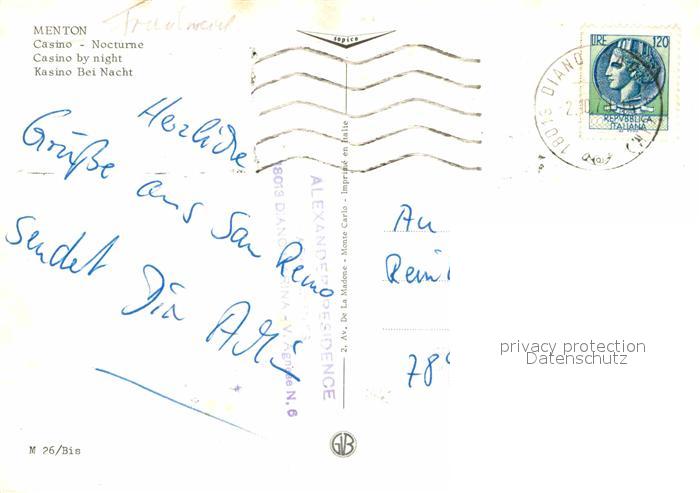 MENTON
Casino - Nocturne
Casino by night
Kasino Bei Nacht
sopico
LIRE 120
REPVBBLICA
ITALIANA
18013 DIANO
Herzliche
Grüße aus San Remo
sendet Dir
ALEXANDER RESIDENCE
18013 DIANO MARINA - V. Agnese N. 6
2, Av. De La Madone - Monte Carlo - Imprimé en Italie
An
789
privacy protection
Datenschutz
M 26/Bis
GB